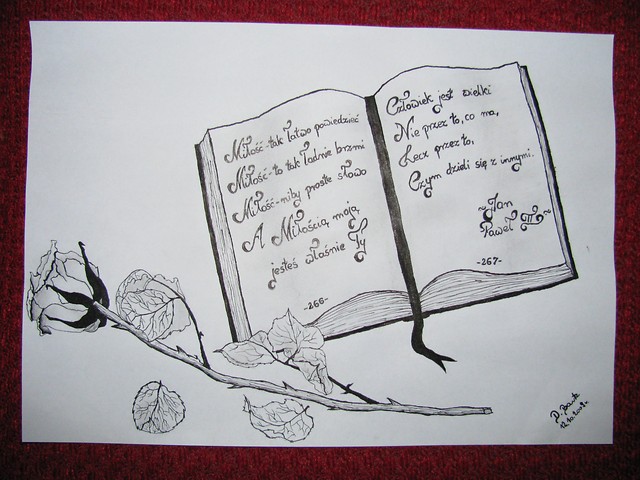 Miłość-tak łatwo powiedzieć
Miłość-to tak ładnie brzmi
Miłość-niby proste słowo
A Miłością moją
jesteś właśnie Ty
-266-
Człowiek jest wielki
Nie przez to, co ma,
Lecz przez to,
Czym dzieli się z innymi.
~Jan
Paweł II~
-267-
D.
12.10.2008r.